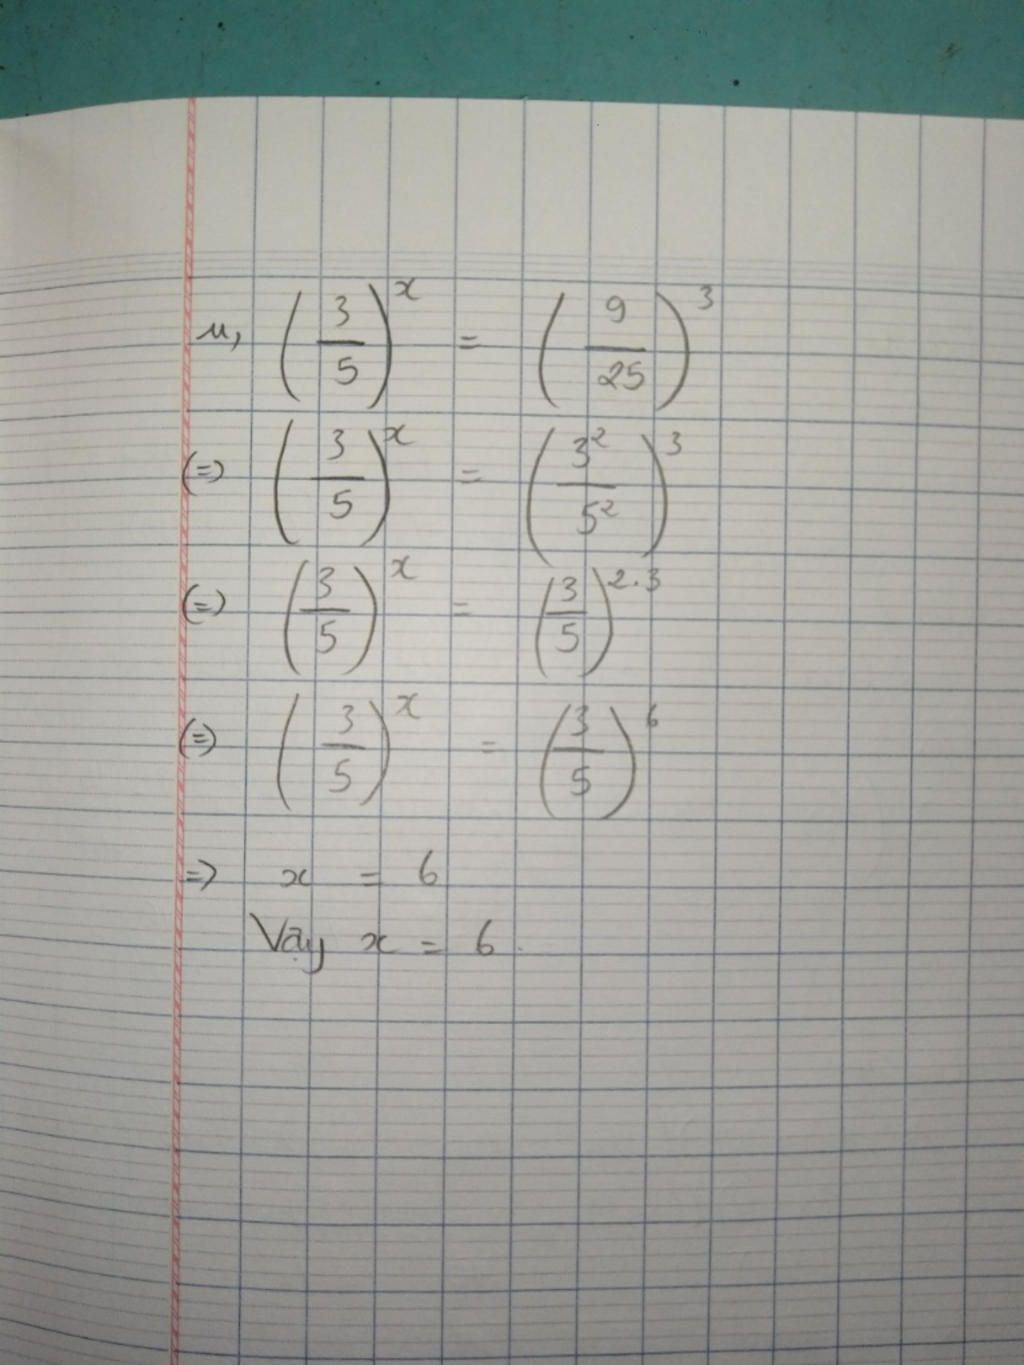 u, (3/5)^x = (9/25)^3
(=) (3/5)^x = (3^2/5^2)^3
(=) (3/5)^x = (3/5)^2.3
(=) (3/5)^x = (3/5)^6
=> x = 6
Vậy x = 6.